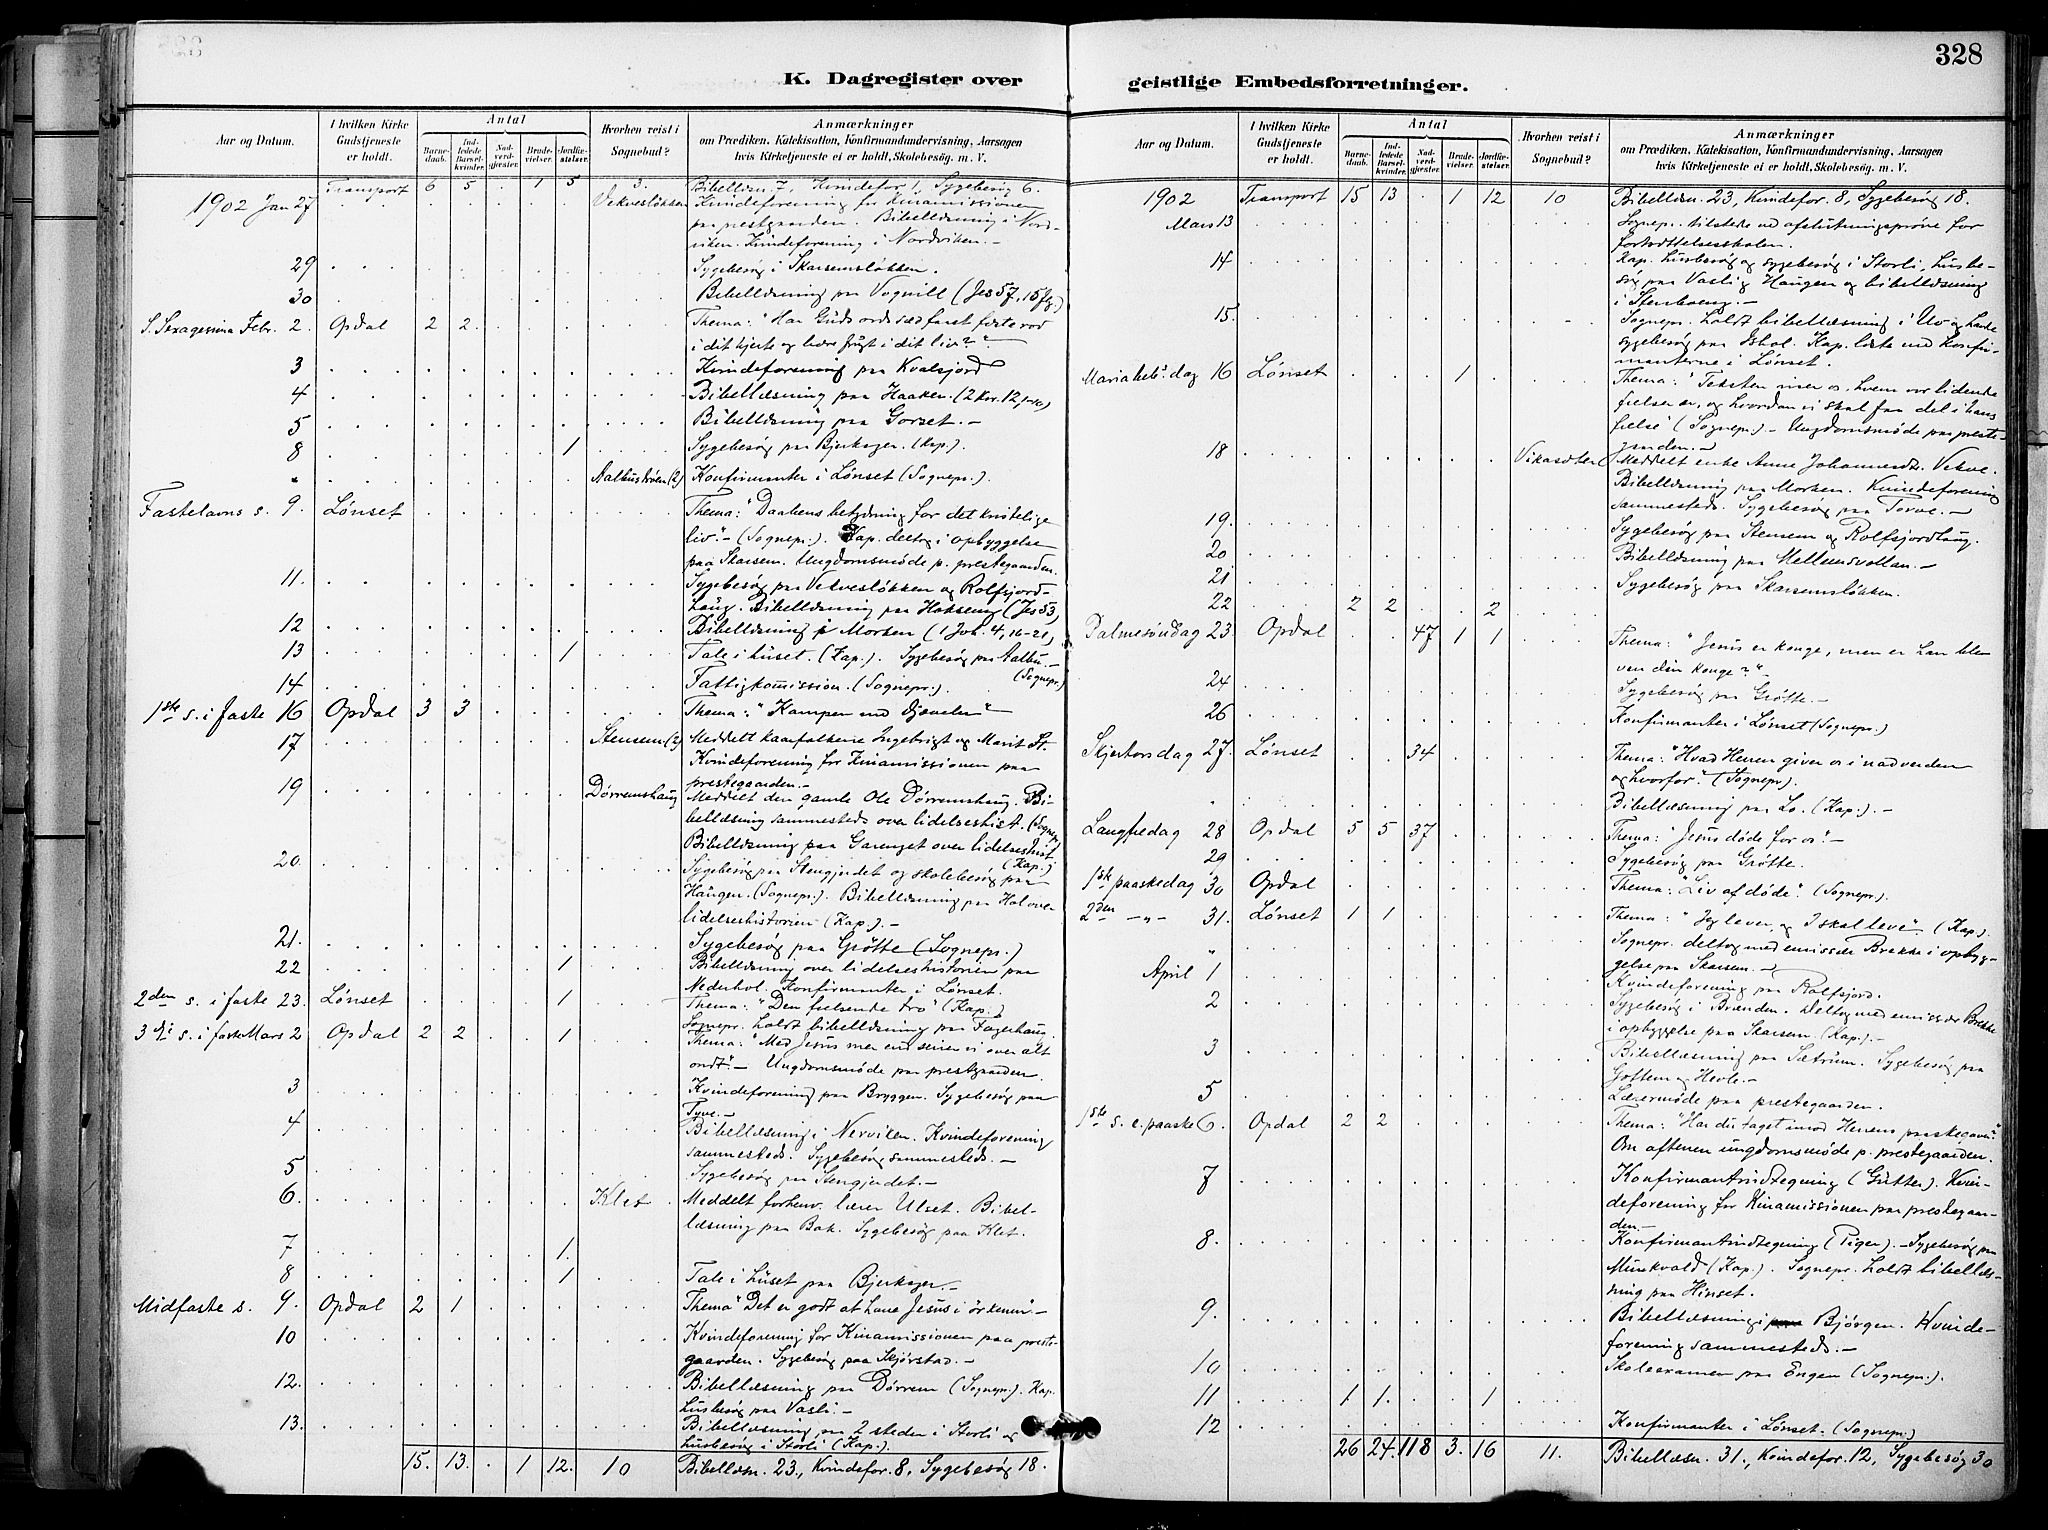 328
K. Dagregister over
Aar og Datum.
I hvilken Kirke Gudstjeneste er holdt.
Antal
Barnedaab.
Indledede Barselkvinder.
Nadverdgjester.
Brudevielser.
Jordfæstelser.
Hvorhen reist i Sognebud?
Anmærkninger
om Prædiken, Katekisation, Konfirmandundervisning, Aarsagen
hvis Kirketjeneste ei er holdt, Skolebesøg. m. V.
Transport 6 5 . 1 5 3. Bibellæsn. 7, Kvindefor. 1, Sygebesög 6.
1902 Jan 27 Vekveslökken Kvindeforening for Kinamissionen
paa prestgaarden. Bibellæsning i Nord-
viken. Kvindeforening i Nordviken.-
29 Sygebesög i Skarsemslökken.
30 Bibellæsning paa Vognill (Jes 57, 15 flg.)
S. Sexagesima Febr. 2. Opdal 2 2 Thema: "Har Guds ords sæd faaet fæste rod
i dit hjerte og bære frugt i dit liv?"
3 Kvindeforening paa Kvalsjord
4 Bibellæsning paa Haaker. (2 Kor. 12, 1-10)
5 Bibellæsning paa Gorset.-
8 1 Sygebesög paa Bjerkager. (Kap.).
" Aalbusdröen (2) Konfirmanter i Lönset (Sognepr.).
Fastelavns s. 9. Lönset Thema: "Daabens betydning for det kristelige
liv".- (Sognepr.). Kap. deltog i opbyggelse
paa Skarsem. Ungdomsmöde p. prestegaarden.
11. Sygebesög paa Vekveslökken og Rolfsjord-
haug. Bibellæsning paa Hokseng (Jes 53)
12 Bibellæsning p. Morken (1 Joh. 4, 16-21)
13 1 Tale i huset. (Kap.). Sygebesög paa Aalbu.- (Sognepr.)
14 Fattigkomission. (Sognepr.).
1ste s. i faste 16 Opdal 3 3 Thema: "Kampen med djævelen"
17 Stensem (2) Meddelt kaarfolkene Ingebrigt og Marit St.
Kvindeforening for Kinamissionen paa
prestegaarden.-
19 Dörremshaug Meddelt den gamle Ole Dörremshaug. Bi-
bellæsning sammesteds over lidelseshist. (Sognepr.)
Bibellæsning paa Gorenget over lidelseshist. (Kap.)
20. Sygebesög paa Stengjerdet og skolebesög paa
Haugen. (Sognepr.). Bibellæsning paa Hol over
lidelseshistorien (Kap.).-
21. Sygebesög paa Grötte (Sognepr.)
22 1 Bibellæsning over lidelseshistorien paa
Nederhol. Konfirmanter i Lönset.
2den s. i faste 23. Lönset 1 Thema: "Den frelsende tro" (Kap.)
Sognepr. holdt bibellæsning paa Fagerhaug.
3die s. i faste Mars 2 Opdal 2 2 1 Thema: "Med Jesus mer end seirer vi over alt
ondt".- Ungdomsmöde paa prestgaarden.
3 Kvindeforening paa Bryggen. Sygebesög paa
4 Bibellæsning i Nerviken. Kvindeforening
sammesteds. Sygebesög sammesteds.-
5 Sygebesög paa Stengjerdet.-
6. Klet Meddelt forhenv. lærer Ulset. Bibel-
læsning paa Bak. Sygebesög paa Klet.
7 1.
8 1 Tale i huset paa Bjerkager.-
Midfaste s. 9. Opdal 2 1 Thema "Det er godt at have Jesus i örkenen".-
10 Kvindeforening for Kinamissionen paa preste-
gaarden. Sygebesög paa Skjörstad.-
12. Bibellæsning paa Dörrem (Sognepr.). Kap.
husbesög paa Vasli.-
13. Bibellæsning paa 2 steder i Storli og
husbesög i Storli (Kap.).
15. 13. . 1 12. 10 Bibellæsn. 23., Kvindefor. 8, Sygebesög 18.
geistlige Embedsforretninger.
Aar og Datum.
I hvilken Kirke Gudstjeneste er holdt.
Antal
Barnedaab.
Indledede Barselkvinder.
Nadverdgjester.
Brudevielser.
Jordfæstelser.
Hvorhen reist i Sognebud?
Anmærkninger
om Prædiken, Katekisation, Konfirmandundervisning, Aarsagen
hvis Kirketjeneste ei er holdt, Skolebesøg. m. V.
1902 Transport 15 13 . 1 12 10 Bibellæsn. 23, Kvindefor. 8, Sygebesög 18.
Mars 13 Sognepr. tilstede ved afslutningspröve for
fortsættelsesskolen.
14 Kap. husbesög og sygebesög i Storli, husbe-
sög paa Vasli, Haugen og bibellæsning
i Stenboeng.-
15. Sognepr. holdt bibellæsning i Uv og havde
sygebesög paa Kap. læste med konfir-
manterne i Lönset.
Maria beb. dag 16 Lönset 1 Thema: "Teksten viser os, hvem vor lidende
frelser er, og hvordan vi skal faa del i hans
frelse" (Sognepr.).- Ungdomsmöde paa preste-
gaarden.-
18 Vikasæter Meddelt enke Anne Johannesd. Vekve.
Bibellæsning paa Morken. Kvindeforening
sammesteds. Sygebesög paa Torve.-
19. Sygebesög paa Stensem og Rolfsjordhaug.
20 Bibellæsning paa Mellemsvollan.-
21 Sygebesög paa Skarsemslökken.
22 2 2 2
Palmesöndag 23. Opdal 47 1 1 Thema: "Jesus er konge, men er han blev
ven din konge?"
24 Sygebesög paa Grötte.-
26 Konfirmanter i Lönset (Sognepr.)
Skjertorsdag 27. Lönset 34 Thema: "Hvad Herren giver os i nadverden
og hvorfor." (Sognepr.).
" Bibellæsning paa Lo. (Kap.).-
Langfredag 28 Opdal 5 5 37 Thema: "Jesus döde for os".-
29 Sygebesög paa Grötte.
1ste paaskedag 30 Opdal Thema: "Liv af döde". (Sognepr.).
2den -"- 31. Lönset 1 1 Thema: "Jeg lever, og I skal leve" (Kap.)
" Sognepr. deltog med emissær Brekke i opbyg-
gelse paa Skarsem.-
April 1 Kvindeforening paa Rolfsjord.
2 Sygebesög i Brænden. Deltog med emissær Brekke
i opbyggelse paa Skarsem. (Kap.).-
3 Bibellæsning paa Sætrum. Sygebesög paa
Gottem og Hevle.-
5 Lærermöde paa prestegaarden.
1ste s. e. paaske 6. Opdal 2 2 Thema: "Har du taget imod Herrens paaskegaver".
Om aftenen ungdomsmöde p. prestegaarden.
7 Konfirmantindtegning (Gutter). Kvin-
deforening for Kinamissionen paa prestegaar-
den.-
8. Konfirmantindtegning (Piger).- Sygebesög paa
Munkvold (Kap.). Sognepr. holdt bibellæs-
ning paa Hinset.
9. Bibellæsning i Björgen. Kvinde-
forening sammesteds.-
10 Skoleexamen paa Engen (Sognepr.).
11 1 1. 1
12 Konfirmanter i Lönset. (Sognepr.)
26 24. 118 3. 16 11. Bibellæsn. 31., Kvindefor. 12, Sygebesög 30